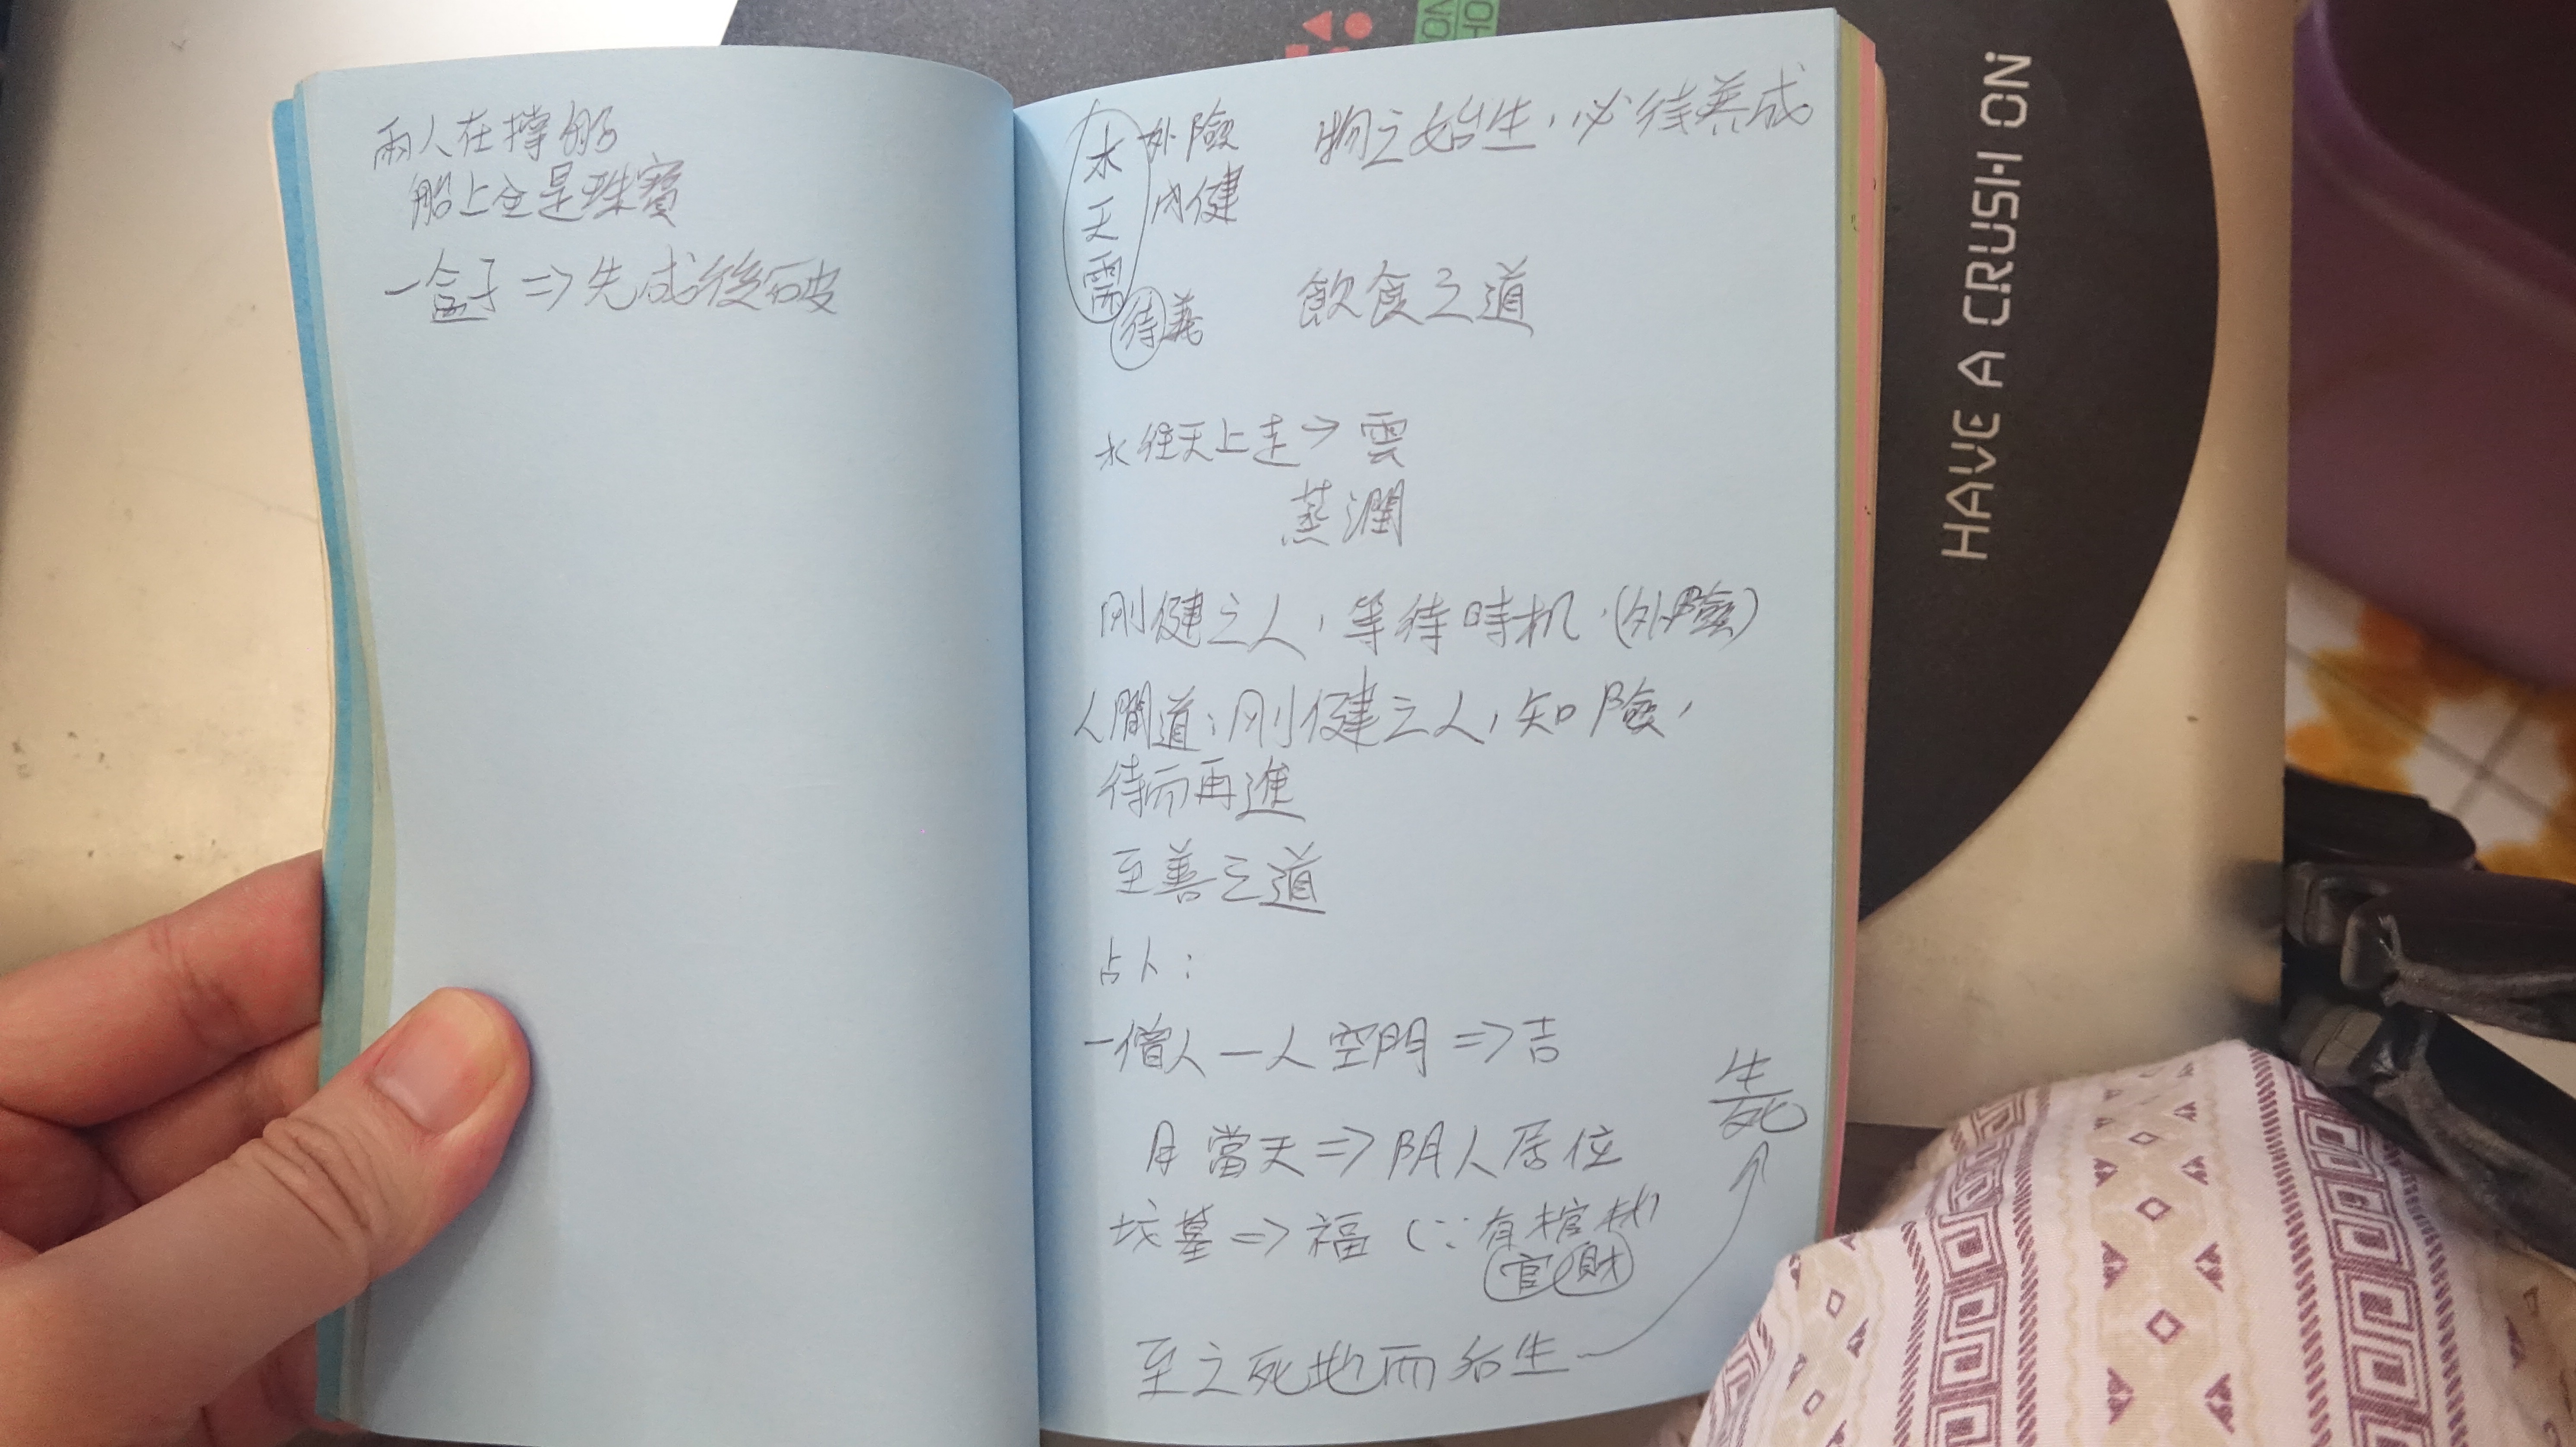 兩人在撐船
船上全是珠寶
一盒子 => 先成後破
水天需
外險
內健
待義
物之始生，必待養成
飲食之道
水往天上走 → 雲
蒸潤
剛健之人，等待時机，(外險)
人間道：剛健之人，知險，
待而再進
至善之道
占卜：
一僧人一人空門 => 吉
月當天 => 阴人居位
坟墓 => 福 (∵有棺材
官財
至之死地而后生
生
死
HAVE A CRUSH ON